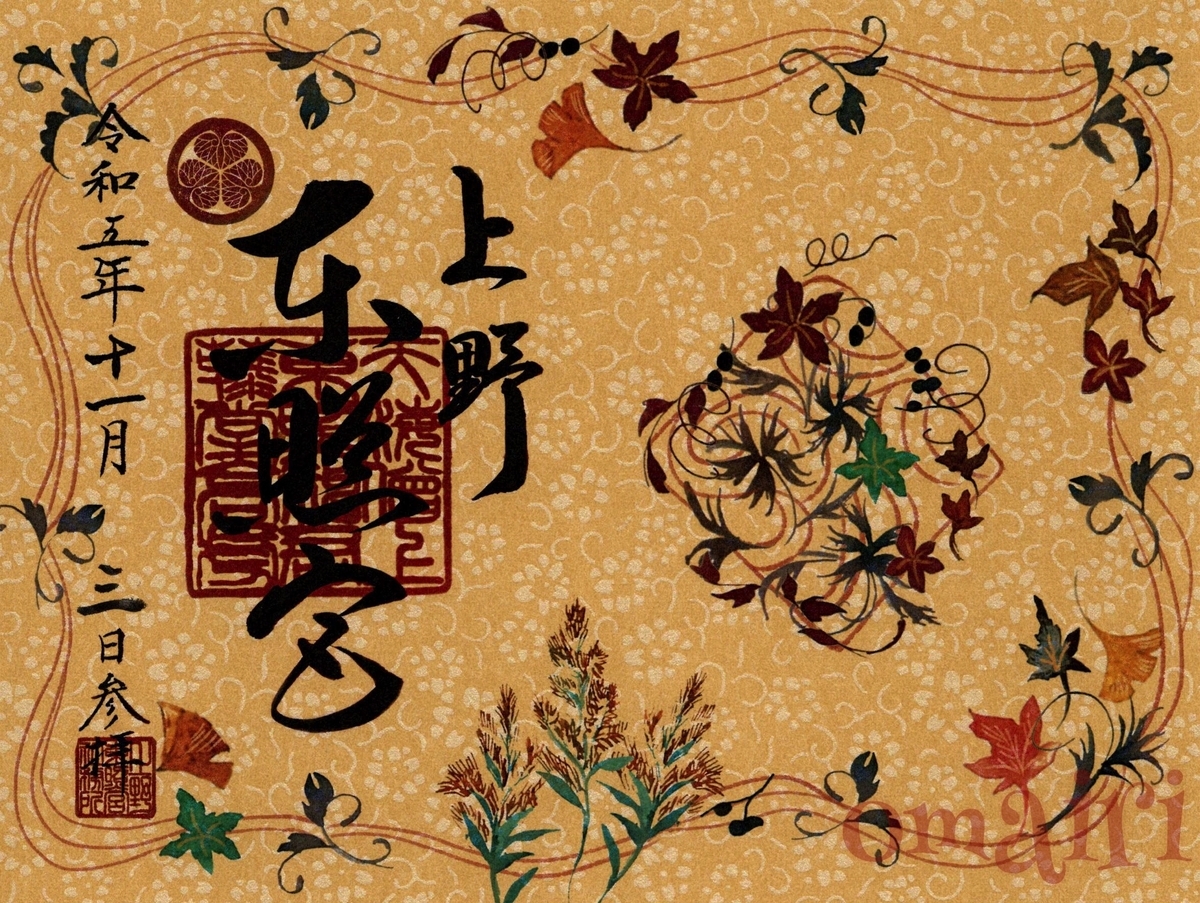 上野
東照宮
令和五年十一月三日参拝
omairi